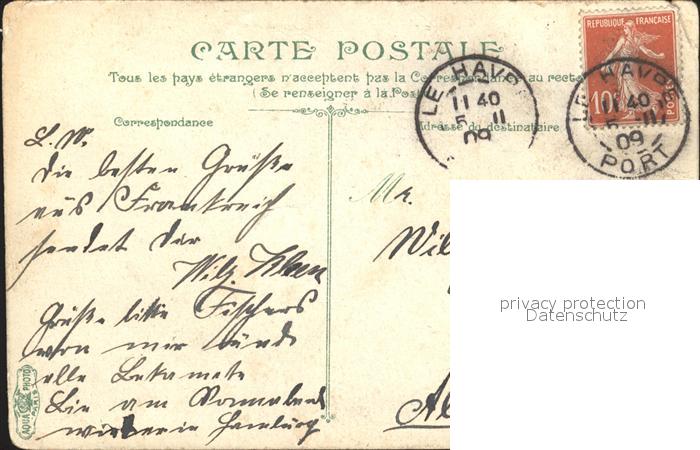 CARTE POSTALE
Tous les pays étrangers n'acceptent pas la Correspondance au recto
(Se renseigner à la Post
Correspondance
Adresse du destinataire
REPUBLIQUE FRANÇAISE
10
POSTES
LE HAVRE
11 40
5 - 11
09
LE HAVRE
11 40
5 - 11
09
PORT
L. W.
Die besten Grüße
aus Frankreich
sendet Dir
Wilh.
Grüße bitte Fischers
von mir und
alle Bekannte
Bin am Sonnabend
wieder in Hamburg
Mr.
Wil
Al
AQUA PHOTO
PARIS
privacy protection
Datenschutz